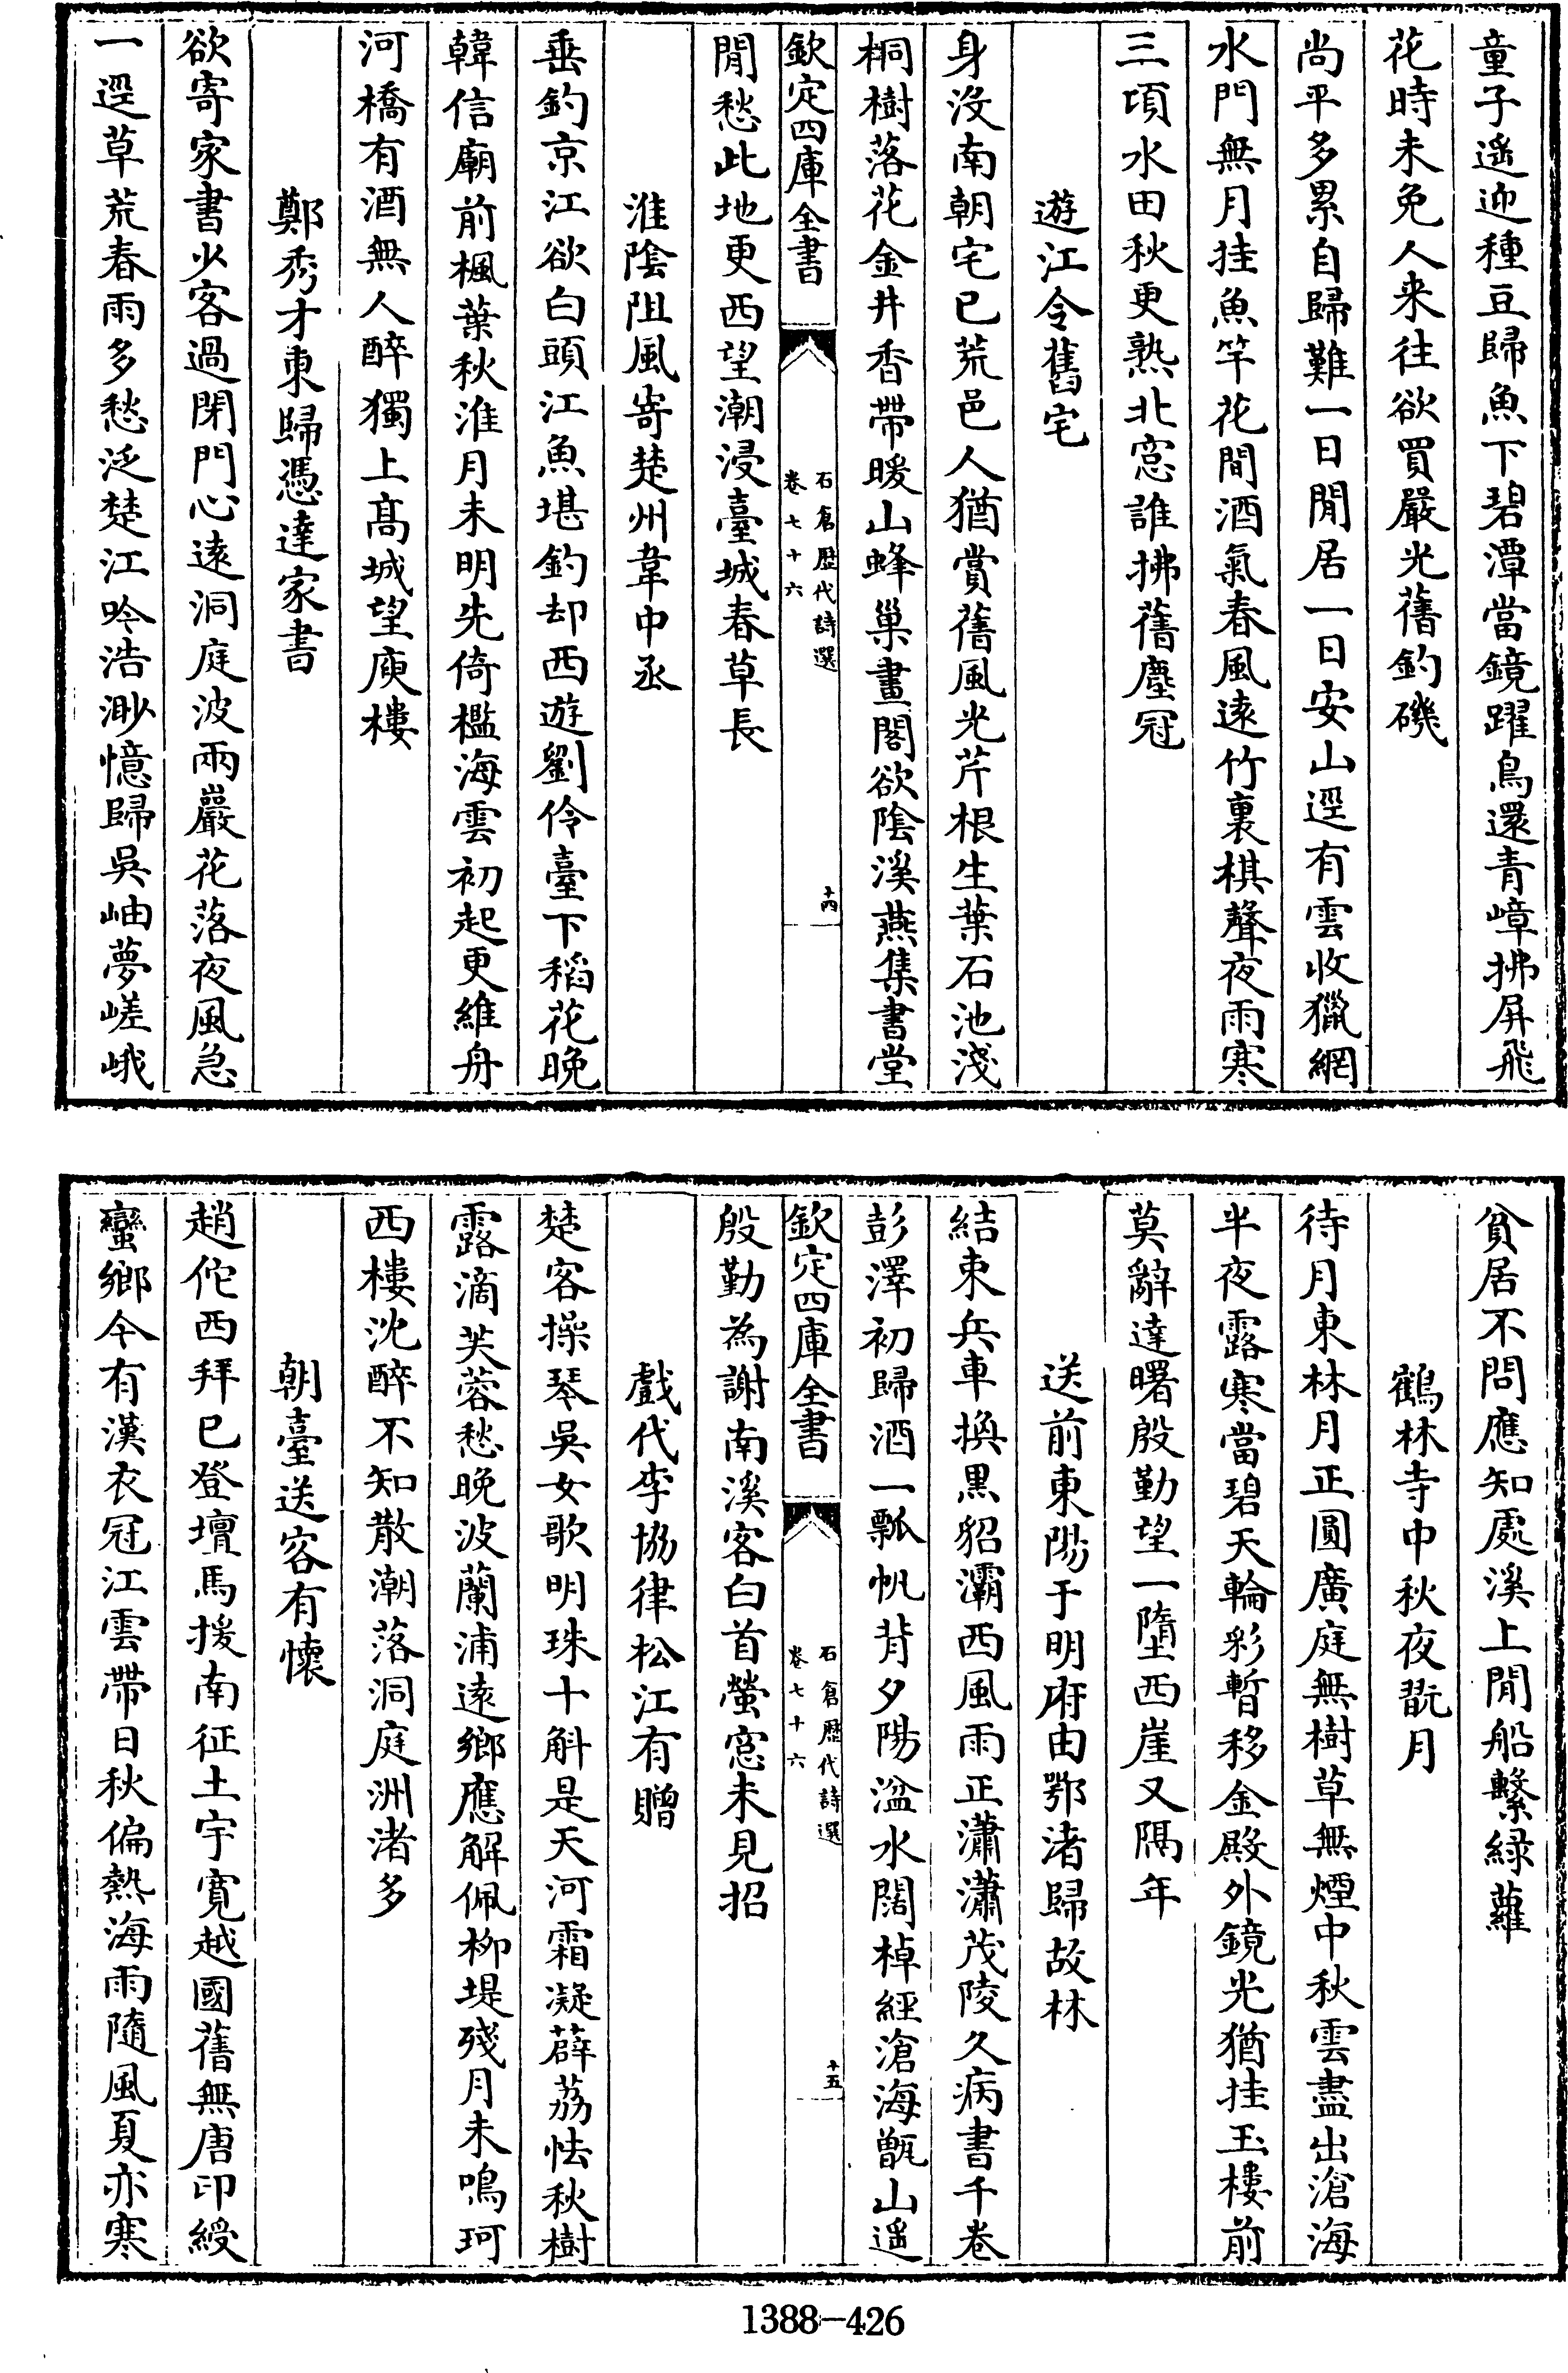 童子遙迎種豆歸魚下碧潭當鏡躍鳥還青嶂拂屏飛
花時未免人来往欲買嚴光舊釣磯
尚平多累自歸難一日閒居一日安山逕有雲收獵網
水門無月挂魚竿花間酒氣春風逺竹裏棋聲夜雨寒
三頃水田秋更熟北窓誰拂舊塵冠
遊江令舊宅
身沒南朝宅已荒邑人猶賞舊風光芹根生葉石池淺
桐樹落花金井香帶暖山蜂巢畫閣欲陰溪燕集書堂
欽定四庫全書
石倉歴代詩選
卷七十六
十四
閒愁此地更西望潮浸臺城春草長
淮陰阻風寄楚州韋中丞
垂釣京江欲白頭江魚堪釣却西遊劉伶臺下稻花晚
韓信廟前楓葉秋淮月未明先倚檻海雲初起更維舟
河橋有酒無人醉獨上髙城望庾樓
鄭秀才東歸憑達家書
欲寄家書少客過閉門心逺洞庭波兩巖花落夜風急
一逕草荒春雨多愁泛楚江吟浩渺憶歸吳岫夢嵯峨
貧居不問應知處溪上閒船繫緑蘿
鶴林寺中秋夜翫月
待月東林月正圓廣庭無樹草無煙中秋雲盡出滄海
半夜露寒當碧天輪彩暫移金殿外鏡光猶挂玉樓前
莫辭達曙殷勤望一墮西崖又隔年
送前東陽于明府由鄂渚歸故林
結束兵車換黒貂灞西風雨正瀟瀟茂陵久病書千卷
彭澤初歸酒一瓢帆背夕陽湓水闊棹經滄海甑山遥
欽定四庫全書
石倉歴代詩選
卷七十六
十五
殷勤為謝南溪客白首螢窓未見招
戲代李協律松江有贈
楚客操琴吳女歌明珠十斛是天河霜凝薜荔怯秋樹
露滴芙蓉愁晚波蘭浦逺鄉應解佩柳堤殘月未鳴珂
西樓沈醉不知散潮落洞庭洲渚多
朝臺送客有懐
趙佗西拜已登壇馬援南征土宇寛越國舊無唐印綬
蠻鄉今有漢衣冠江雲帶日秋偏熱海雨隨風夏亦寒
1388-426